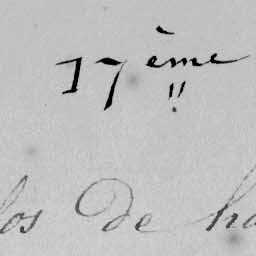 17ème
los de ha